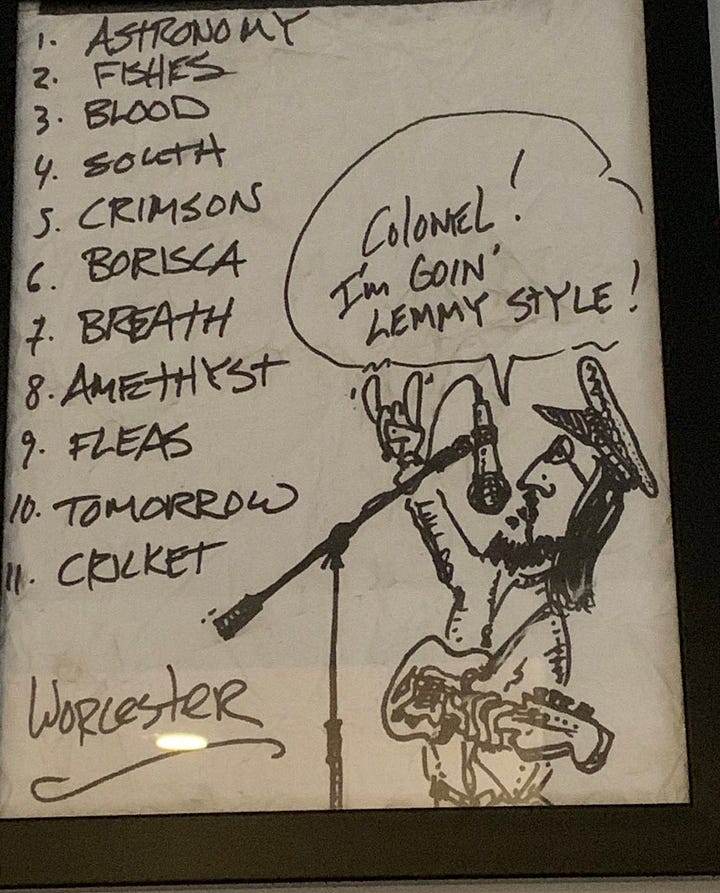 1. ASTRONOMY
2. FISHES
3. BLOOD
4. SOUTH
5. CRIMSON
6. BORISCA
7. BREATH
8. AMETHYST
9. FLEAS
10. TOMORROW
11. CRICKET
COLONEL!
I'm GOIN'
LEMMY STYLE!
WORCESTER